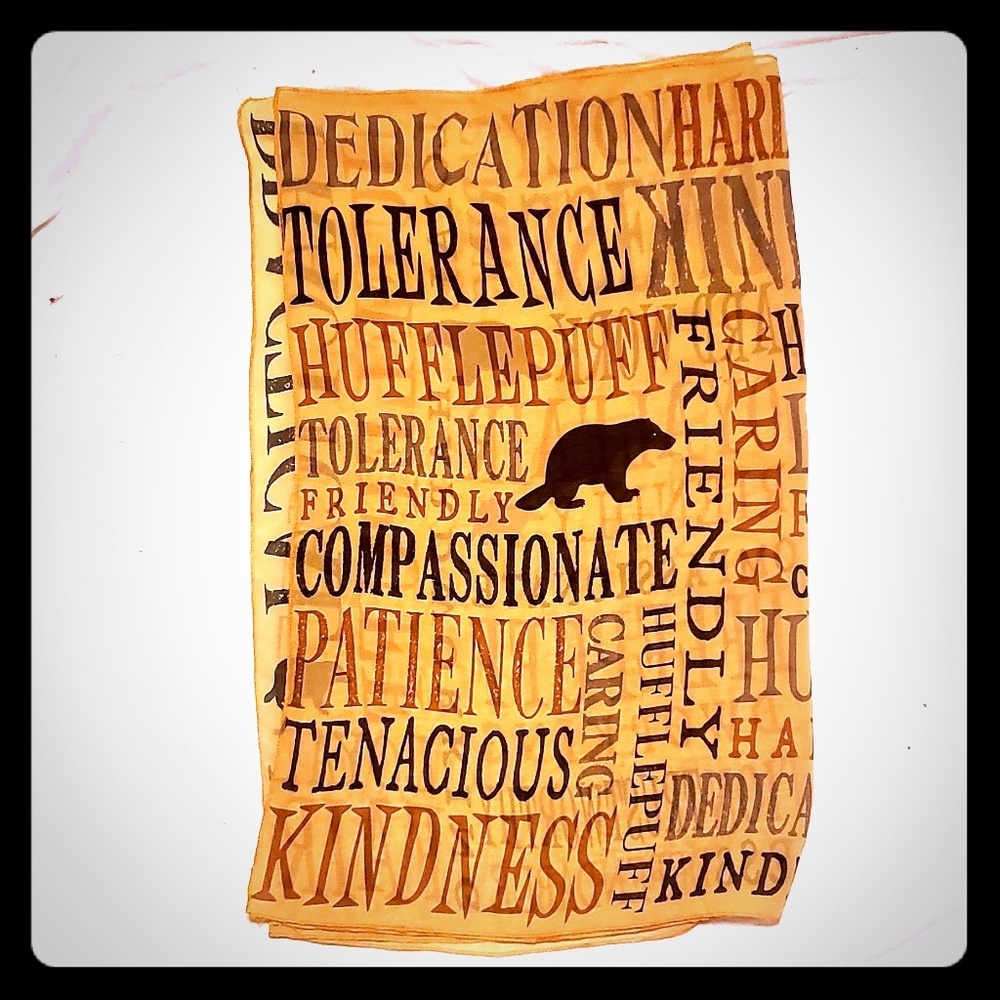 DEDICATION HARD
TOLERANCE KIND
HUFFLEPUFF
TOLERANCE
FRIENDLY
COMPASSIONATE
PATIENCE
TENACIOUS
KINDNESS
CARING
HUFFLEPUFF
FRIENDLY
CARING
HU
HA
DEDICA
KIND